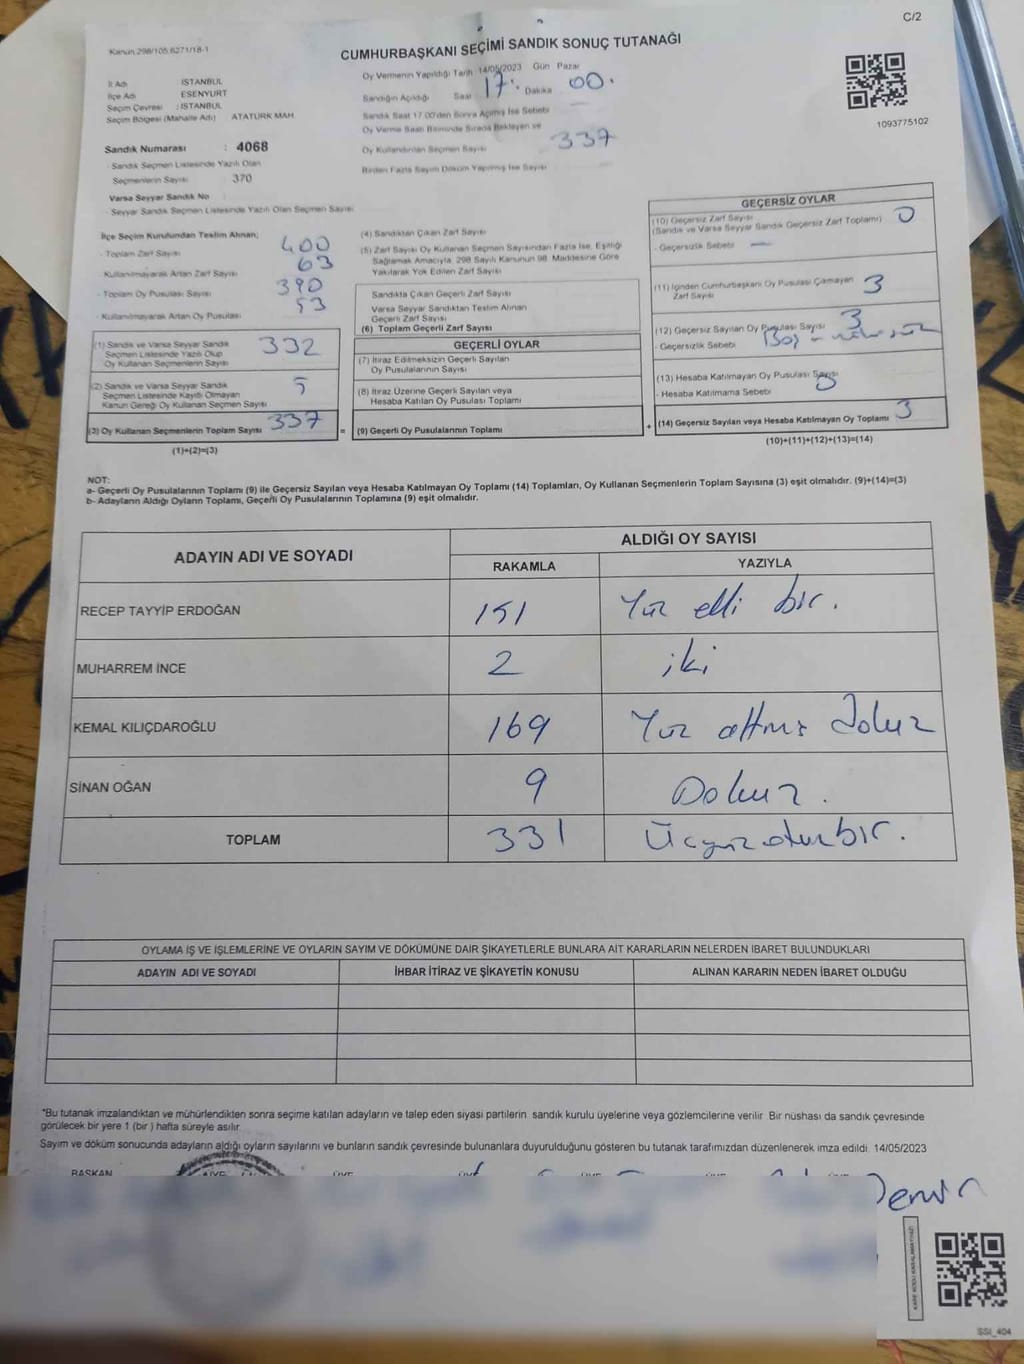 C/2
Kanun 298/105 6271/18-1
CUMHURBAŞKANI SEÇİMİ SANDIK SONUÇ TUTANAĞI
İl Adı İSTANBUL
İlçe Adı ESENYURT
Seçim Çevresi : İSTANBUL
Seçim Bölgesi (Mahalle Adı) ATATÜRK MAH.
Sandık Numarası : 4068
- Sandık Seçmen Listesinde Yazılı Olan
Seçmenlerin Sayısı 370
Varsa Seyyar Sandık No
- Seyyar Sandık Seçmen Listesinde Yazılı Olan Seçmen Sayısı
Oy Vermenin Yapıldığı Tarih 14/05/2023 Gün Pazar
Sandığın Açıldığı Saat 17. Dakika 00.
Sandık Saat 17.00'den Sonra Açılmış İse Sebebi
Oy Verme Saati Bitiminde Sırada Bekleyen ve
Oy Kullandırılan Seçmen Sayısı 337
Birden Fazla Sayım Döküm Yapılmış İse Sayısı
1093775102
İlçe Seçim Kurulundan Teslim Alınan;
- Toplam Zarf Sayısı 400
Kullanılmayarak Artan Zarf Sayısı 63
- Toplam Oy Pusulası Sayısı 390
- Kullanılmayarak Artan Oy Pusulası 53
(1) Sandık ve Varsa Seyyar Sandık
Seçmen Listesinde Yazılı Olup
Oy Kullanan Seçmenlerin Sayısı 332
(2) Sandık ve Varsa Seyyar Sandık
Seçmen Listesinde Kayıtlı Olmayan
Kanun Gereği Oy Kullanan Seçmen Sayısı 5
(3) Oy Kullanan Seçmenlerin Toplam Sayısı 337
(1)+(2)=(3)
(4) Sandıktan Çıkan Zarf Sayısı
(5) Zarf Sayısı Oy Kullanan Seçmen Sayısından Fazla İse, Eşitliği
Sağlamak Amacıyla, 298 Sayılı Kanunun 98. Maddesine Göre
Yakılarak Yok Edilen Zarf Sayısı
Sandıkta Çıkan Geçerli Zarf Sayısı
Varsa Seyyar Sandıktan Teslim Alınan
Geçerli Zarf Sayısı
(6) Toplam Geçerli Zarf Sayısı
=
GEÇERLİ OYLAR
(7) İtiraz Edilmeksizin Geçerli Sayılan
Oy Pusulalarının Sayısı
(8) İtiraz Üzerine Geçerli Sayılan veya
Hesaba Katılan Oy Pusulası Toplamı
(9) Geçerli Oy Pusulalarının Toplamı
+
GEÇERSİZ OYLAR
(10) Geçersiz Zarf Sayısı
(Sandık ve Varsa Seyyar Sandık Geçersiz Zarf Toplamı) 0
- Geçersizlik Sebebi —
(11) İçinden Cumhurbaşkanı Oy Pusulası Çıkmayan
Zarf Sayısı 3
(12) Geçersiz Sayılan Oy Pusulası Sayısı 3
- Geçersizlik Sebebi Boş -
(13) Hesaba Katılmayan Oy Pusulası Sayısı
- Hesaba Katılmama Sebebi
(14) Geçersiz Sayılan veya Hesaba Katılmayan Oy Toplamı 3
(10)+(11)+(12)+(13)=(14)
NOT:
a- Geçerli Oy Pusulalarının Toplamı (9) ile Geçersiz Sayılan veya Hesaba Katılmayan Oy Toplamı (14) Toplamları, Oy Kullanan Seçmenlerin Toplam Sayısına (3) eşit olmalıdır. (9)+(14)=(3)
b- Adayların Aldığı Oyların Toplamı, Geçerli Oy Pusulalarının Toplamına (9) eşit olmalıdır.
ADAYIN ADI VE SOYADI ALDIĞI OY SAYISI
RAKAMLA YAZIYLA
RECEP TAYYİP ERDOĞAN 151 Yüz elli bir.
MUHARREM İNCE 2 iki
KEMAL KILIÇDAROĞLU 169 Yüz altmış dokuz
SİNAN OĞAN 9 Dokuz.
TOPLAM 331 Üçyüzotuzbir.
OYLAMA İŞ VE İŞLEMLERİNE VE OYLARIN SAYIM VE DÖKÜMÜNE DAİR ŞİKAYETLERLE BUNLARA AİT KARARLARIN NELERDEN İBARET BULUNDUKLARI
ADAYIN ADI VE SOYADI İHBAR İTİRAZ VE ŞİKAYETİN KONUSU ALINAN KARARIN NEDEN İBARET OLDUĞU
*Bu tutanak imzalandıktan ve mühürlendikten sonra seçime katılan adayların ve talep eden siyasi partilerin sandık kurulu üyelerine veya gözlemcilerine verilir. Bir nüshası da sandık çevresinde
görülecek bir yere 1 (bir) hafta süreyle asılır.
Sayım ve döküm sonucunda adayların aldığı oyların sayılarını ve bunların sandık çevresinde bulunanlara duyurulduğunu gösteren bu tutanak tarafımızdan düzenlenerek imza edildi. 14/05/2023
BAŞKAN ÜYE ÜYE ÜYE
SSI_404